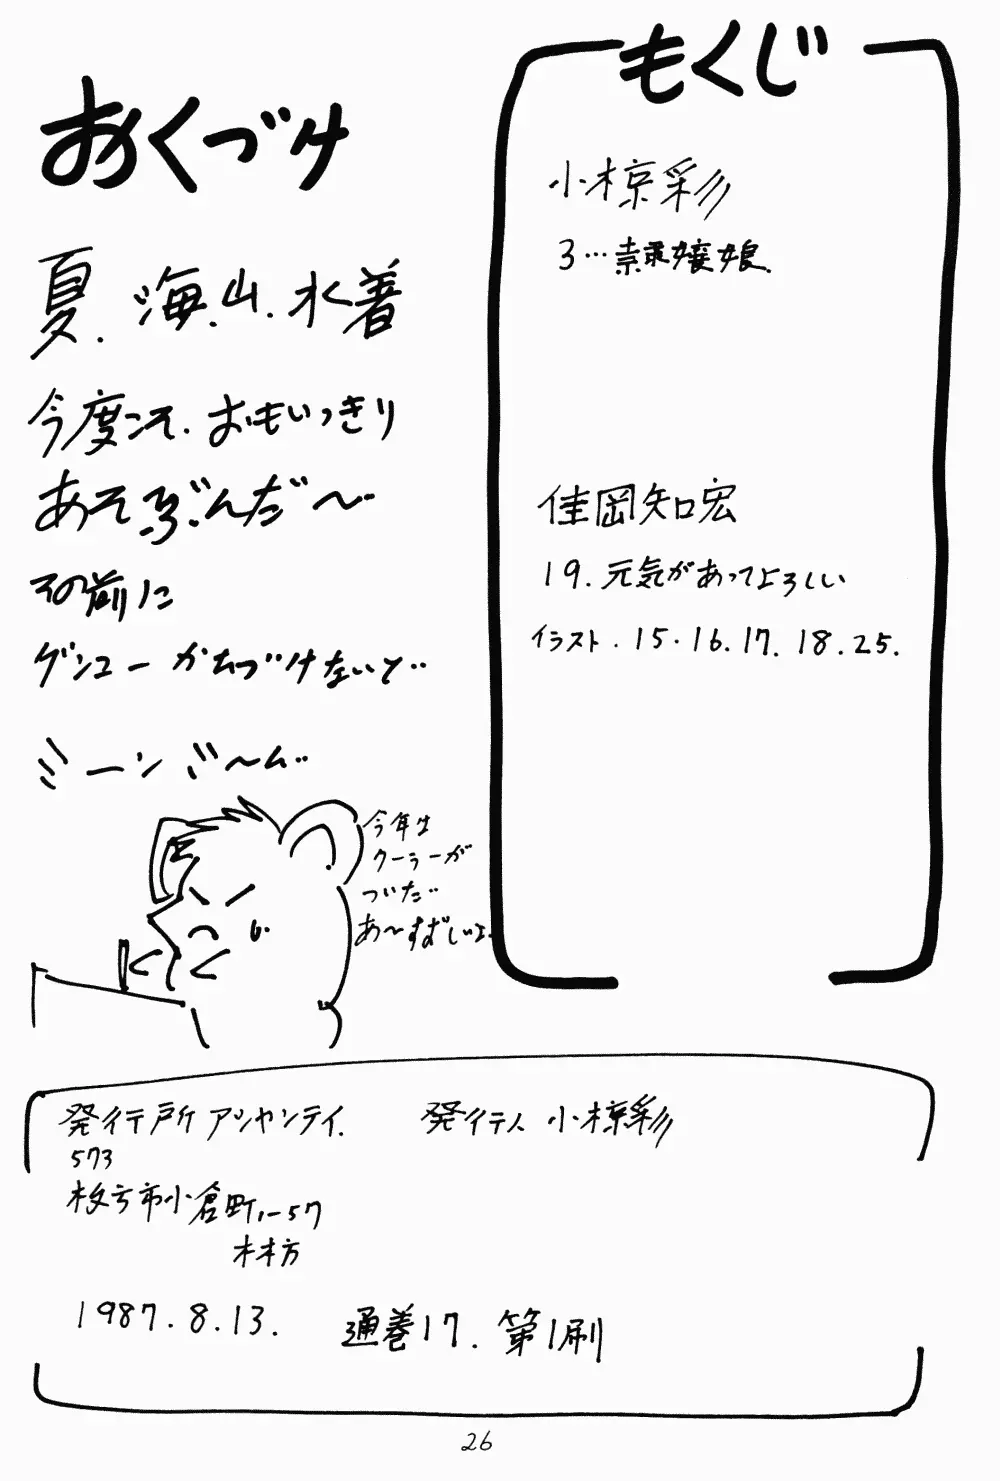 もくじ
小椋彩
3…隷嬢娘.
佳岡知宏
19.元気があってよろしい
イラスト.15.16.17.18.25.
おくづけ
夏.海.山.水着
今度こそ.おもいっきり
あそぶんだ〜
その前に
ゲンコーかたづけないと…
ミーンミ〜ん…
今年は
クーラーが
ついた…
あ〜すずしいよ.
発行所 アシャンティ. 発行人 小椋彩
573
枚方市小倉町11-57
林方
1987.8.13. 通巻17.第1刷
26